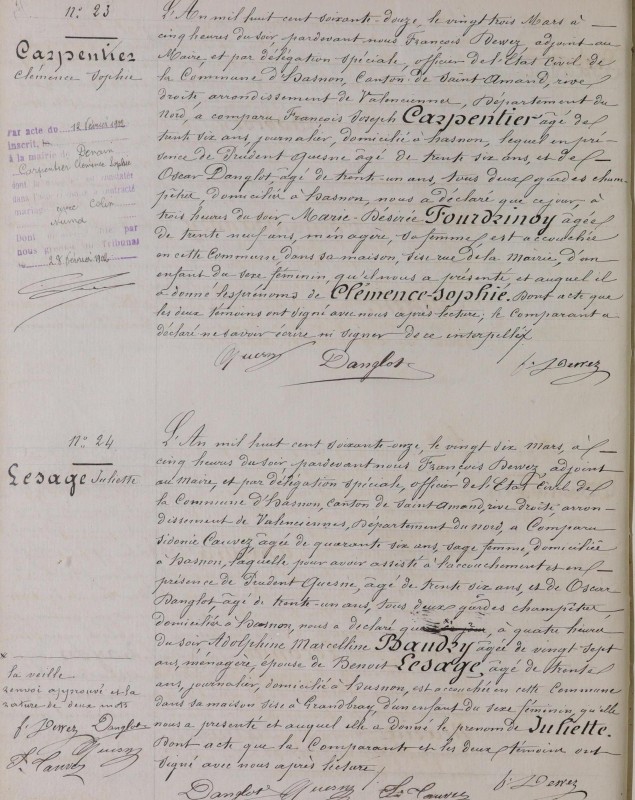 N° 23
Carpentier
Clémence Sophie
Par acte du 12 février
inscrit
à la mairie de Denain
Carpentier Clémence Sophie
avec Colin
28 février
L'An mil huit cent soixante-douze, le vingt trois Mars à
cinq heures du soir pardevant nous François Dewez adjoint au
Maire, et par délégation spéciale, officier de l'État Civil de
la Commune d'Hasnon, Canton de Saint Amand, rive
droite, arrondissement de Valenciennes, Département du
Nord, a comparu François Joseph Carpentier âgé de
trente six ans, journalier, domicilié à hasnon, lequel en pré-
sence de Prudent Quesne âgé de trente six ans, et de
Oscar Danglot âgé de trente-un ans, tous deux gardes cham-
pêtre, domicilié à hasnon, nous a déclaré que ce jour, à
trois heures du soir Marie-Désirée Fourdrinoy âgée
de trente neuf ans, ménagère, sa femme, est accouchée
en cette Commune, dans sa maison, sise rue de la Mairie, d'un
enfant du sexe féminin, qu'il nous a présenté et auquel il
a donné les prénoms de Clémence-Sophie. Dont acte que
les deux témoins ont signé avec nous après lecture; le Comparant a
déclaré ne savoir écrire ni signer de ce interpellé
Quesne Danglot f. Dewez
N° 24
Lesage Juliette
L'An mil huit cent soixante-onze, le vingt six Mars, à
cinq heures du soir, pardevant nous François Dewez, adjoint
au Maire, et par délégation spéciale, officier de l'État Civil de
la Commune d'hasnon, canton de Saint Amand, rive droite, arron-
dissement de Valenciennes, Département du Nord, a Comparu
Sidonie Cauvez, âgée de quarante six ans, sage femme, domiciliée
à hasnon, laquelle pour avoir assisté à l'accouchement et en
présence de Prudent Quesne, âgé de trente six ans, et de Oscar
Danglot, âgé de trente-un ans, tous deux gardes champêtre,
domicilié à hasnon, nous a déclaré que, à quatre heures
du soir Adolphine Marcelline Baudry âgée de vingt sept
ans, ménagère, épouse de Benoit Lesage, âgé de trente
ans, journalier, domicilié à hasnon, est accouchée en cette Commune
dans sa maison sise à Grandbray, d'un enfant du sexe féminin, qu'elle
nous a présenté et auquel elle a donné le prénom de Juliette.
Dont acte que la Comparante et les deux témoins ont
signé avec nous après lecture
la veille
renvoi approuvé et la
rature de deux mots
f. Dewez Danglot
Quesne
Se Cauvez
Danglot Quesne Se Cauvez f. Dewez